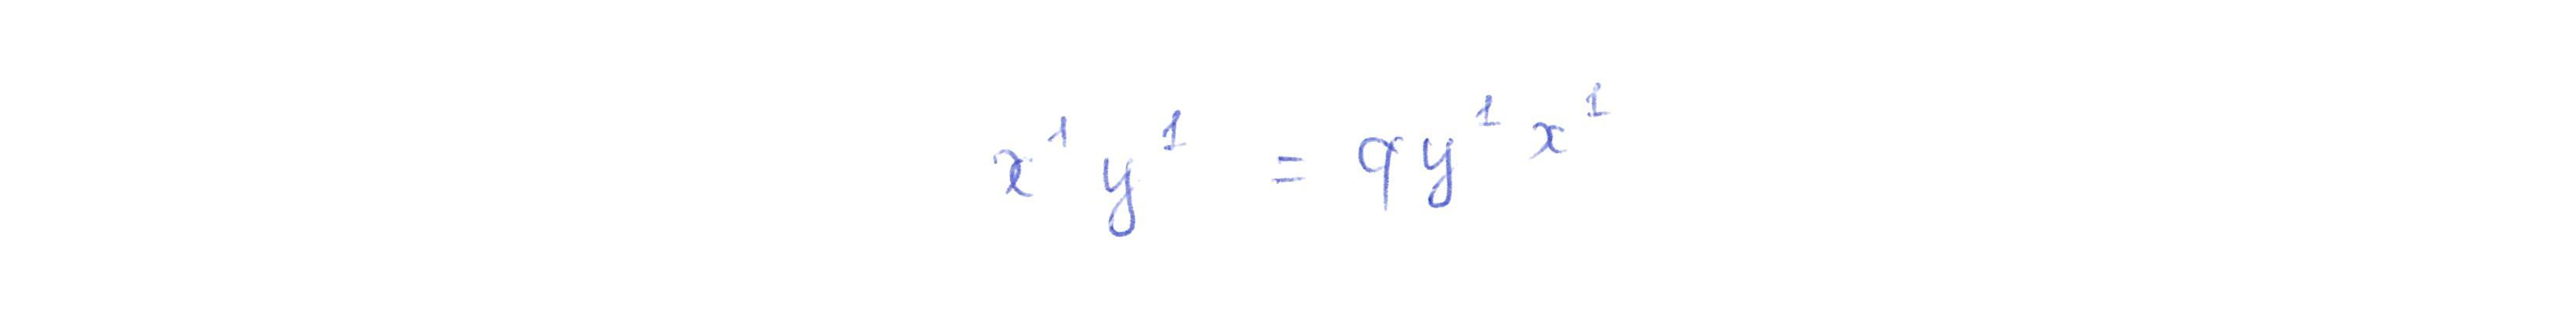 x¹y¹ = qy¹x¹